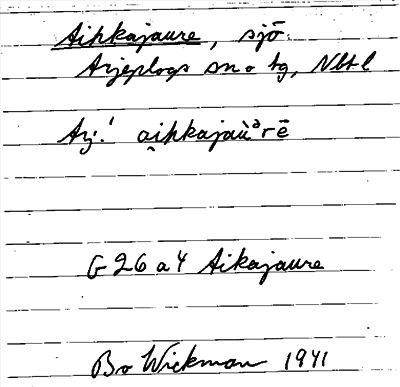 Aihkajaure, sjö.
Arjeplogs sn o tg, Nbt. l
Arj.! ạihkajaù̀ᵊrē
G 26 a 4 Aikajaure
Bo Wickman 1941